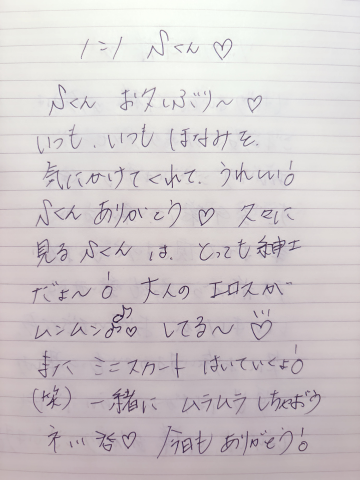 Nくん♡
Nくん お久しぶり〜♡
いつも、いつも ほなみを、
気にかけてくれて、うれしい!
Nくん ありがとう♡ 久々に
見る Nくん は、とっても 紳士
だよ〜! 大人の エロスが
ムンムン♡ してる〜♡
また ミニスカート はいていくよ!
(笑) 一緒に ムラムラ しちゃおう
ネ♡ 今日も ありがとう!